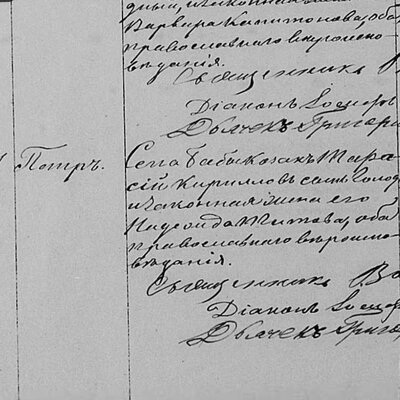 Варвара Капитонова, оба
православнаго вѣроиспо-
вѣданія.
Священникъ
Діаконъ
Дьячекъ Григорі
Петръ.
Села Бабы Козакъ Тара
сій Кирилловъ сынъ Голод
и законная жена его
Надежда Титова, оба
православнаго вѣроиспо-
вѣданія.
Священникъ
Діаконъ
Дьячекъ Григо